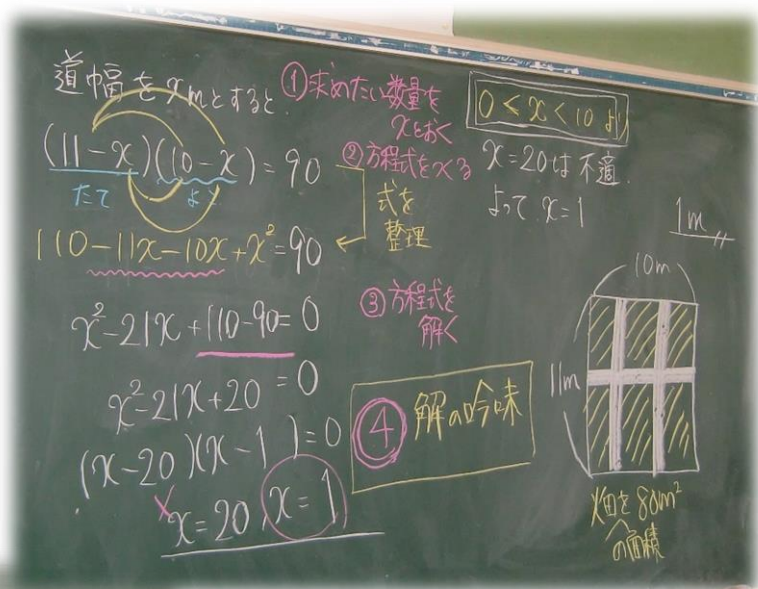 道幅をxmとすると
(11-x)(10-x)=90
たて よこ
110-11x-10x+x²=90
x²-21x+110-90=0
x²-21x+20=0
(x-20)(x-1)=0
x=20, x=1
①求めたい数量を
xとおく
②方程式をつくる
式を
整理
③方程式を
解く
④ 解の吟味
0<x<10より
x=20は不適
よって x=1
1m
10m
11m
畑を80m²
の面積